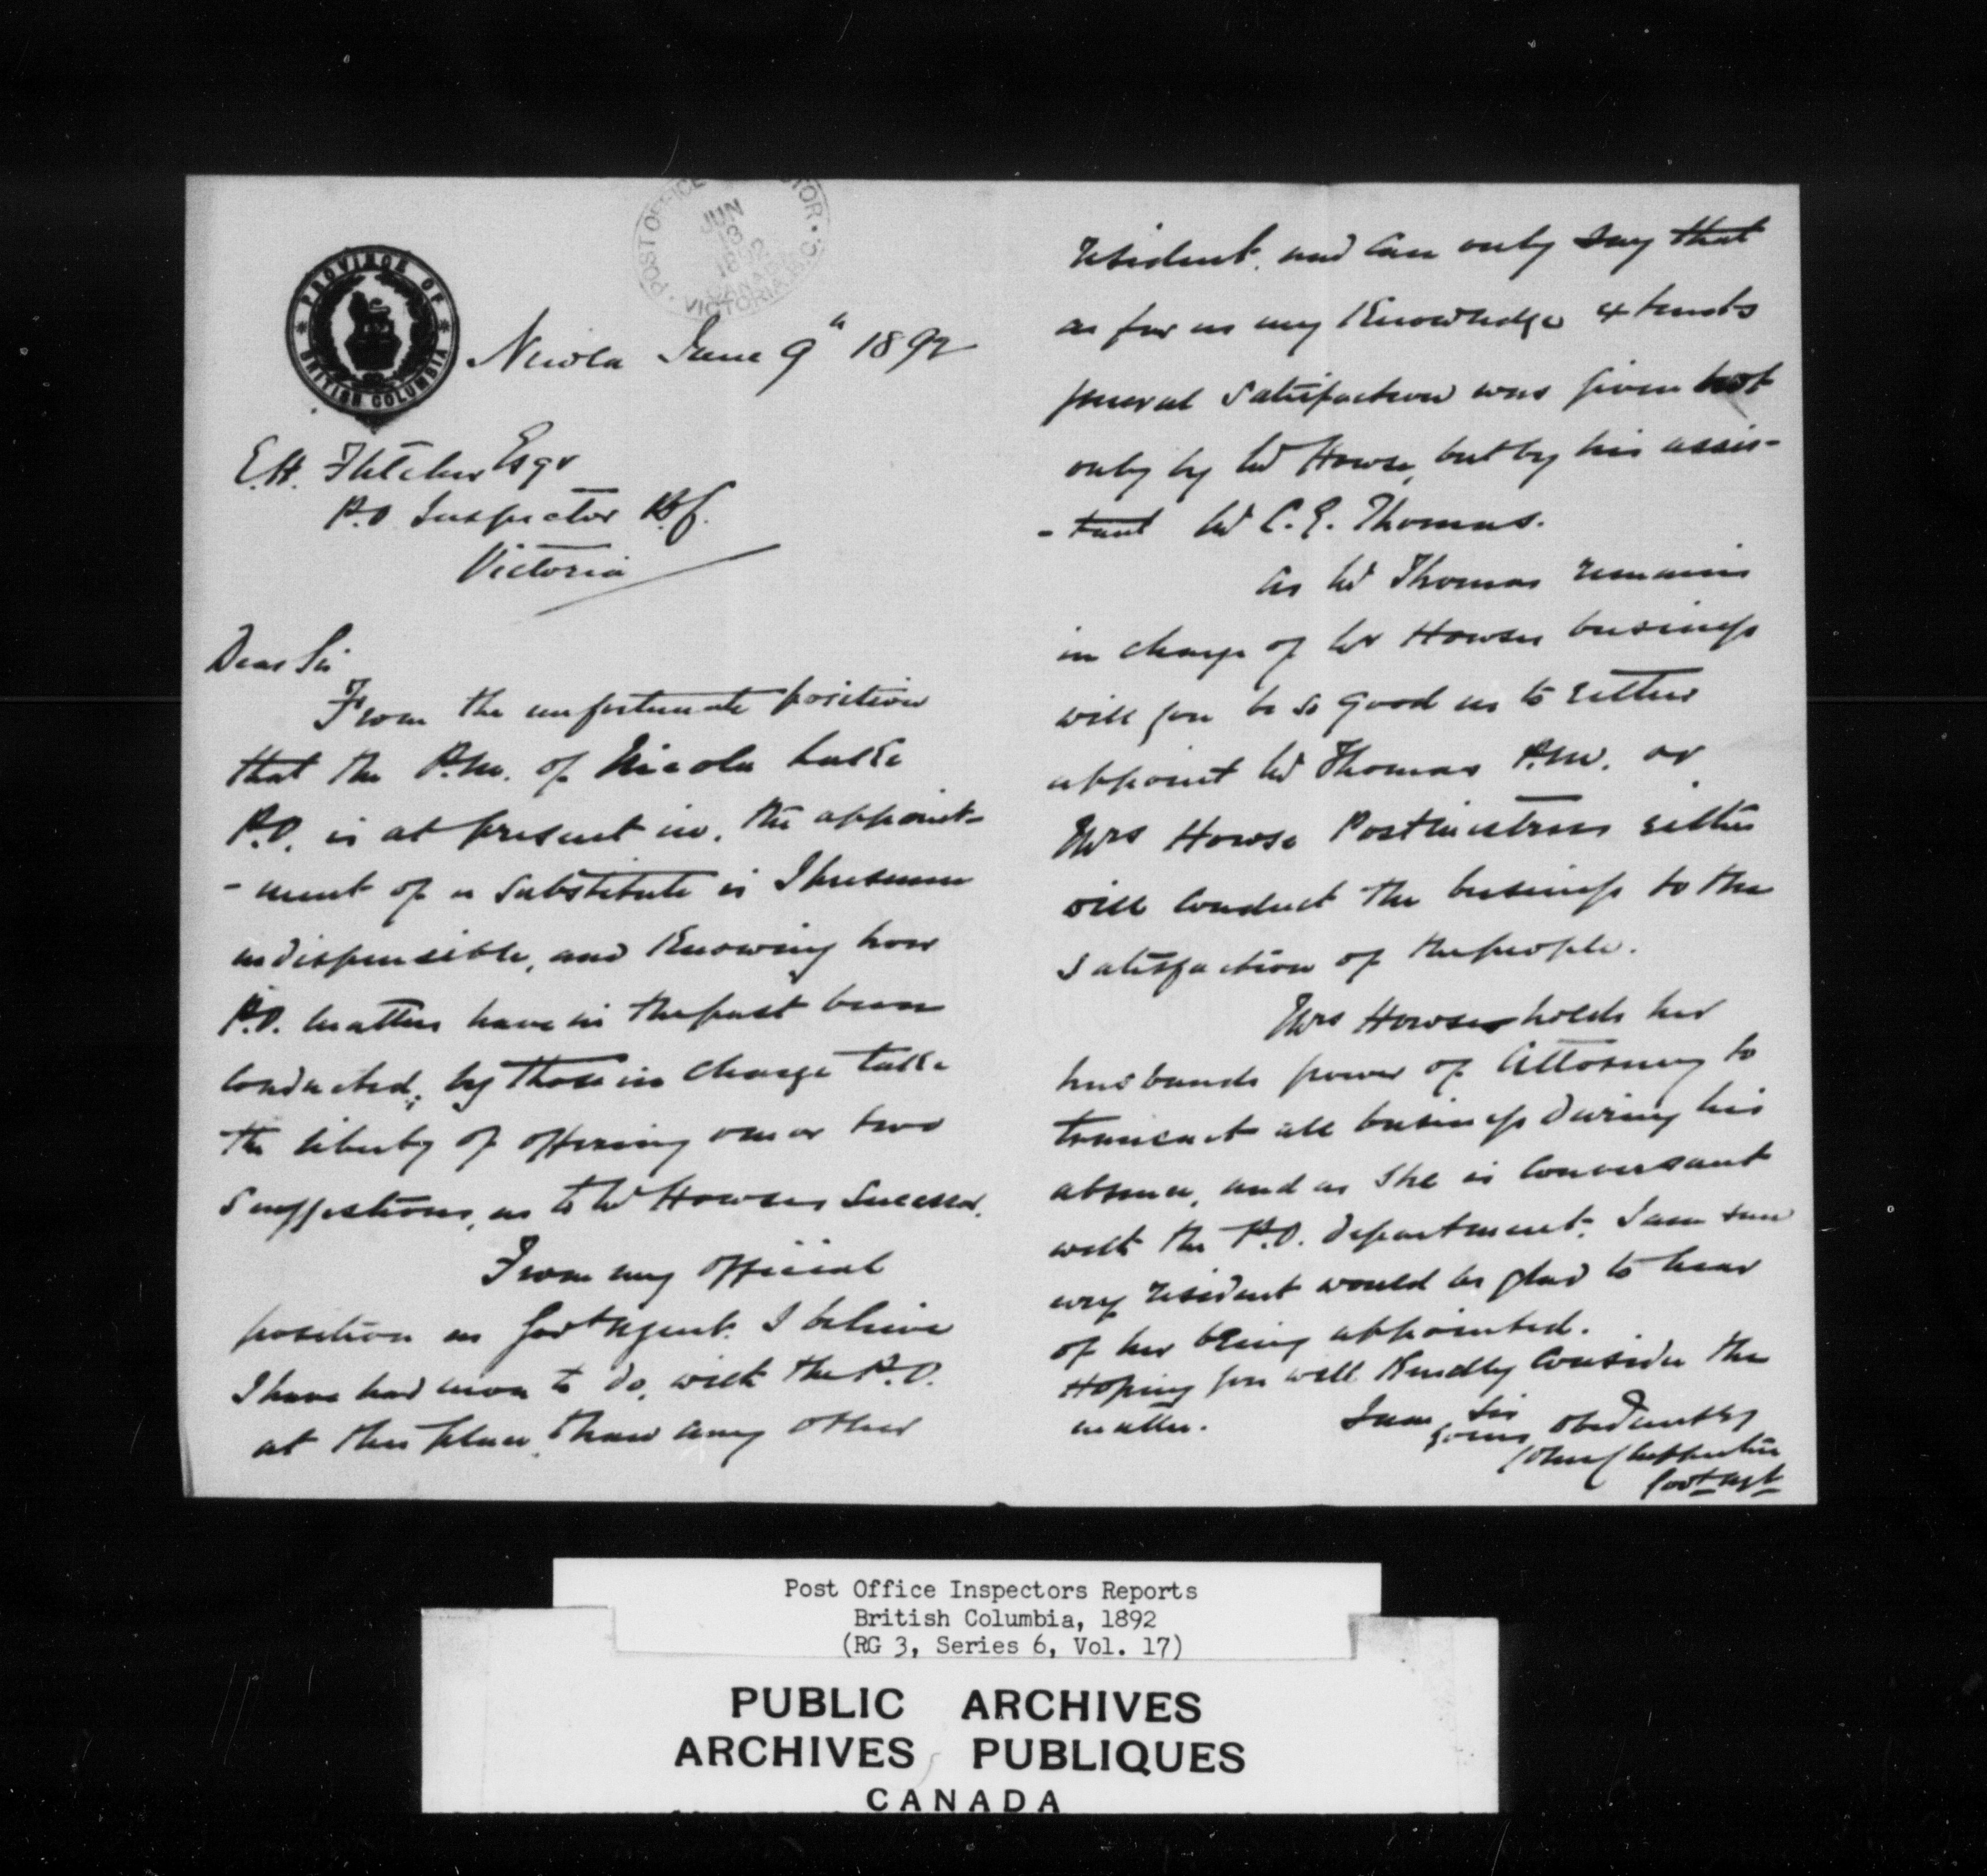 PROVINCE OF
BRITISH COLUMBIA
POST OFFICE INSPECTOR
JUN
13
1892
CANADA
VICTORIA B.C.
Nicola June 9" 1892
E.H. Fletcher Esqr
P.O Inspector B.C.
Victoria
Dear Sir
From the unfortunate position
that the P.M. of Nicola Lake
P.O. is at present in, the appoint-
-ment of a substitute is I presume
indispensible, and knowing how
P.O. matters have in the past been
conducted, by those in charge take
the liberty of offering one or two
suggestions, as to Mr Howses Successor.
From my official
position as Govt Agent. I believe
I have had more to do, with the P.O.
at this place, than any other
resident. and can only say that
as far as my knowledge extends
general satisfaction was given not
only by Mr Howse, but by his assis-
-tant Mr C.E. Thomas.
As Mr Thomas remains
in charge of Mr Howses business
will you be so good as to either
appoint Mr Thomas P.M. or
Mrs Howse Postmistress either
will conduct the business to the
satisfaction of the people.
Mrs Howse holds her
husbands power of Attorney to
transact all business during his
absence, and as she is conversant
with the P.O. department. I am sure
every resident would be glad to hear
of her being appointed.
Hoping you will kindly consider the
matter. I am Sir
yours obediently
John Clapperton
Govt Agt
Post Office Inspectors Reports
British Columbia, 1892
(RG 3, Series 6, Vol. 17)
PUBLIC ARCHIVES
ARCHIVES PUBLIQUES
CANADA